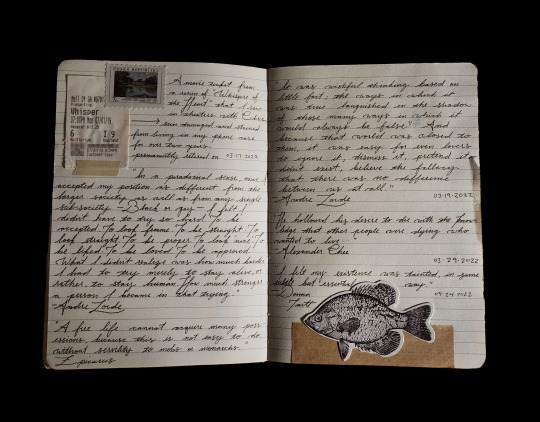 Whisper
6 19
ČESKÁ REPUBLIKA
A movie ticket from
a rerun of "Whisper of
the Heart" that I saw
in theaters with Chris
sun damaged and stained
from living in my phone case
for over two years.
permanently retired on 03-17-2022
"In a paradoxical sense, once I
accepted my position as different from the
larger society as well as from any single
sub-society — Black or gay — I felt I
didn't have to try so hard. To be
accepted. To look femme. To be straight. To
look straight. To be proper. To look nice. To
be liked. To be loved. To be approved.
What I didn't realize was how much harder
I had to try merely to stay alive, or
rather, to stay human. How much stronger
a person I became in that trying."
-Audre Lorde
"A free life cannot acquire many poss
essions, because this is not easy to do
without servility to mobs or monarchs."
Epicurus
"So was wishful thinking based on
little fact; the ways in which it
was true languished in the shadow
of those many ways in which it
would always be false." And
because that world was closed to
them, it was easy for even lovers
to ignore it, dismiss it, pretend it
didn't exist, believe the fallacy
that there was no difference
between us at all."
-Audre Lorde 03-19-2022
He hollowed his desire to die with the know
ledge that other people were dying who
wanted to live
-Alexander Chee
03-29-2022
I felt my existence was tainted, in some
subtle but essential way."
-Donna
Tartt
04-24-2022